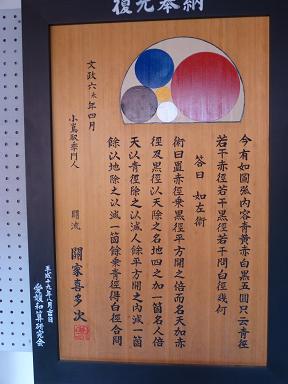 復元奉納
今有如圖弧内容青黄赤白黒五圓只云青徑
若干赤徑若干黒徑若干問白徑幾何
答曰如左術
術曰置赤徑乗黒徑平方開之倍而名天加赤
徑及黒徑以天除之名地四之加一箇名人倍
天以青徑除之以減人餘平方開之内減一箇
餘以地除之以減一箇餘乗青徑得白徑合問
文政六未年四月
門人
關流
關家喜多次
平成十九年八月吉日
愛媛和算研究会